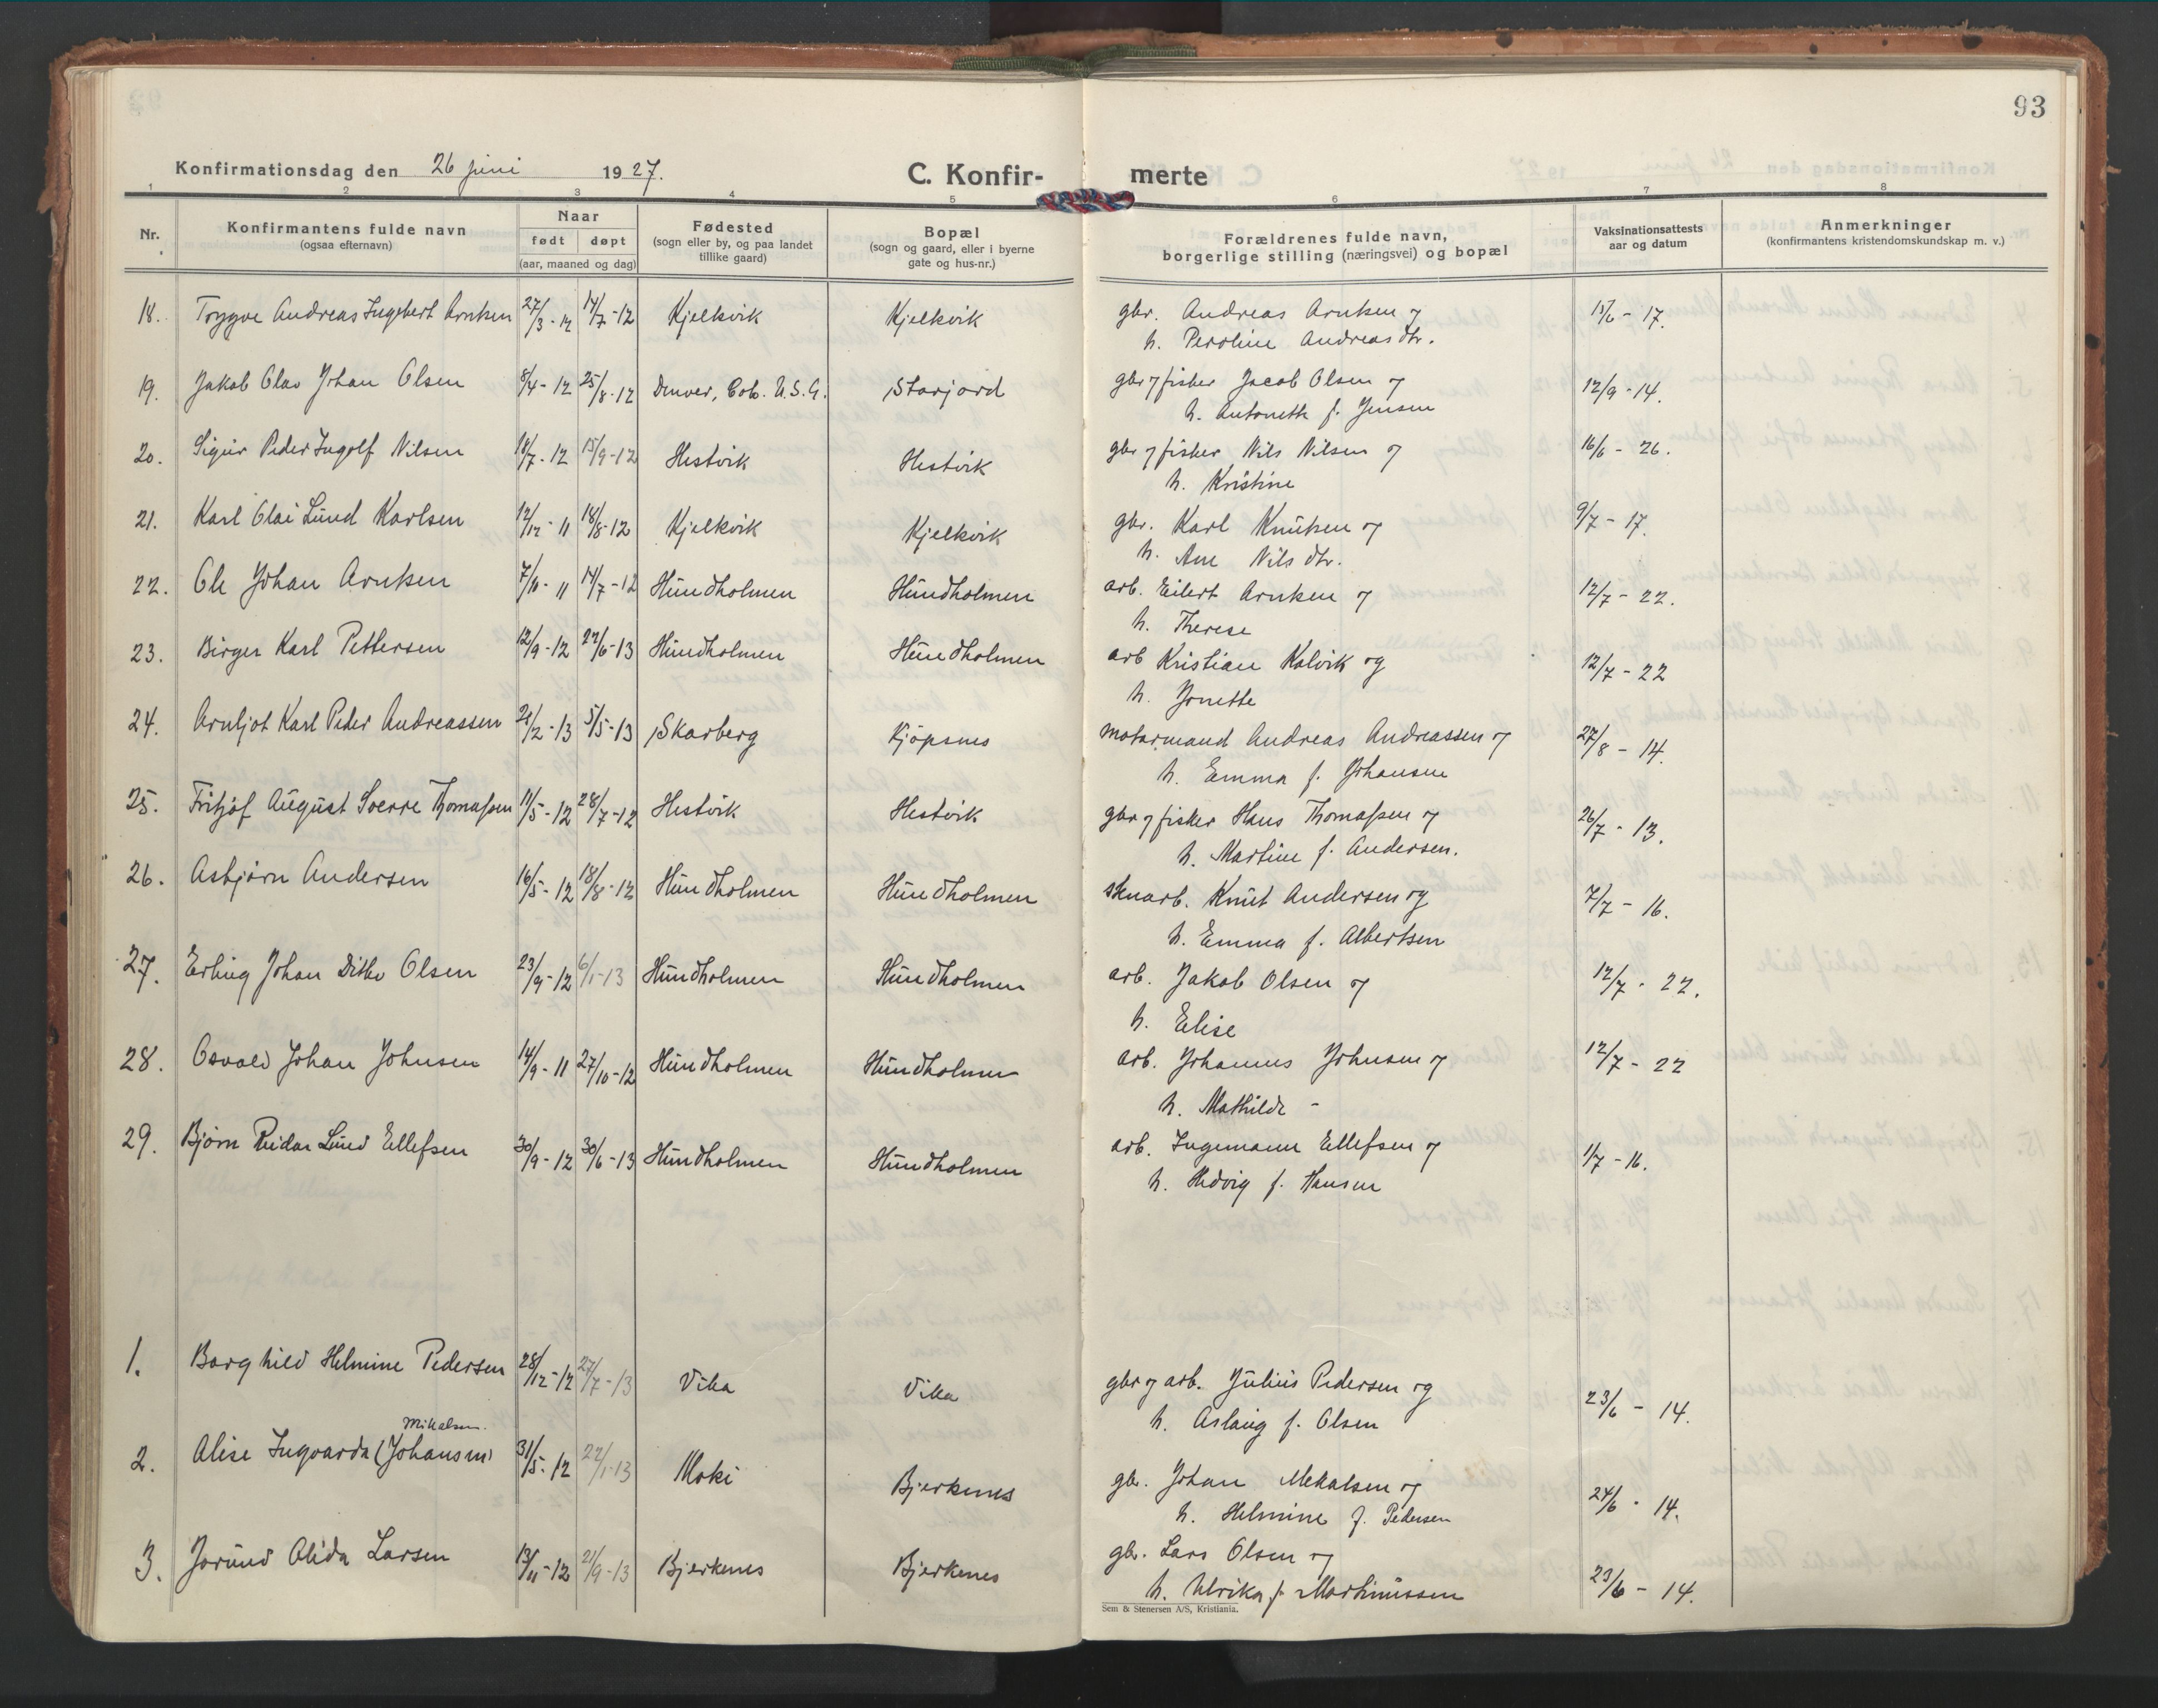 93
Konfirmationsdag den 26 juni 1927. C. Konfir- merte
1 2 3 4 5 6 7 8
Nr. Konfirmantens fulde navn (ogsaa efternavn) Naar født døpt (aar, maaned og dag) Fødested (sogn eller by, og paa landet tillike gaard) Bopæl (sogn og gaard, eller i byerne gate og hus-nr.) Forældrenes fulde navn, borgerlige stilling (næringsvei) og bopæl Vaksinationsattests aar og datum Anmerkninger (konfirmantens kristendomskundskap m. v.)
18. Tryggve Andreas Ingebert Arntsen 27/3-12 14/7-12 Kjelkvik Kjelkvik gbr. Andreas Arntsen og 15/6-17.
h. Peroline Andreasdtr.
19. Jakob Olav Johan Olsen 8/4-12 25/8-12 Denver, Colo. U.S.A. Storjord gbr og fisker Jacob Olsen og 12/9-14.
h. Antonette f. Jensen
20. Sigur Peder Ingolf Nilsen 18/7-12 15/9-12 Hestvik Hestvik gbr og fisker Nils Nilsen og 16/6-26.
h. Kristine
21. Karl Olai Lund Karlsen 12/12-11 18/8-12 Kjelkvik Kjelkvik gbr. Karl Knutsen og 9/7-17.
h. Ane Nilsdtr.
22. Ole Johan Arntsen 11 14/7-12 Hundholmen Hundholmen arb. Eilert Arntsen og 12/7-22.
h. Therese
23. Birger Karl Pettersen 12/9-12 22/6-13 Hundholmen Hundholmen arb Kristian Kalvik og 12/7-22
h. Jonette
24. Arnljot Karl Peder Andreassen 21/2-13 5/5-13 Skarberg Kjøpsnes motormand Andreas Andreassen og 27/8-14.
h. Emma f. Johansen
25. Fritjof August Sverre Thomassen 11/5-12 28/7-12 Hestvik Hestvik gbr og fisker Hans Thomassen og 26/7-13.
h. Martine f. Andersen.
26. Asbjørn Andersen 16/5-12 18/8-12 Hundholmen Hundholmen stenarb. Knut Andersen og 7/7-16.
h. Emma f. Albertsen
27. Erling Johan Ditlev Olsen 23/9-12 6/1-13 Hundholmen Hundholmen arb. Jakob Olsen og 12/7-22.
h. Elise
28. Osvald Johan Johnsen 14/9-11 27/10-12 Hundholmen Hundholmen arb. Johannes Johnsen og 12/7-22
h. Mathilde -
29. Bjørn Reidar Lund Ellefsen 30/9-12 30/6-13 Hundholmen Hundholmen arb. Ingemann Ellefsen og 1/7-16.
h. Hedvig f. Hansen
1. Borghild Helmine Pedersen 28/12-12 27/7-13 Vika Vika gbr og arb. Julius Pedersen og 23/6-14.
h. Aslaug f. Olsen
Mikalsen.
2. Alise Ingvarda (Johansen) 31/5-12 22/1-13 Moki Bjerkenes gb. Johan Mekalsen og 24/6-14.
h. Helmine f. Pedersen
3. Jorund Alida Larsen 13/11-12 21/9-13 Bjerkenes Bjerkenes gb. Lars Olsen og 23/6-14.
h. Ulrika f. Martinussen
Sem & Stenersen A/S, Kristiania.